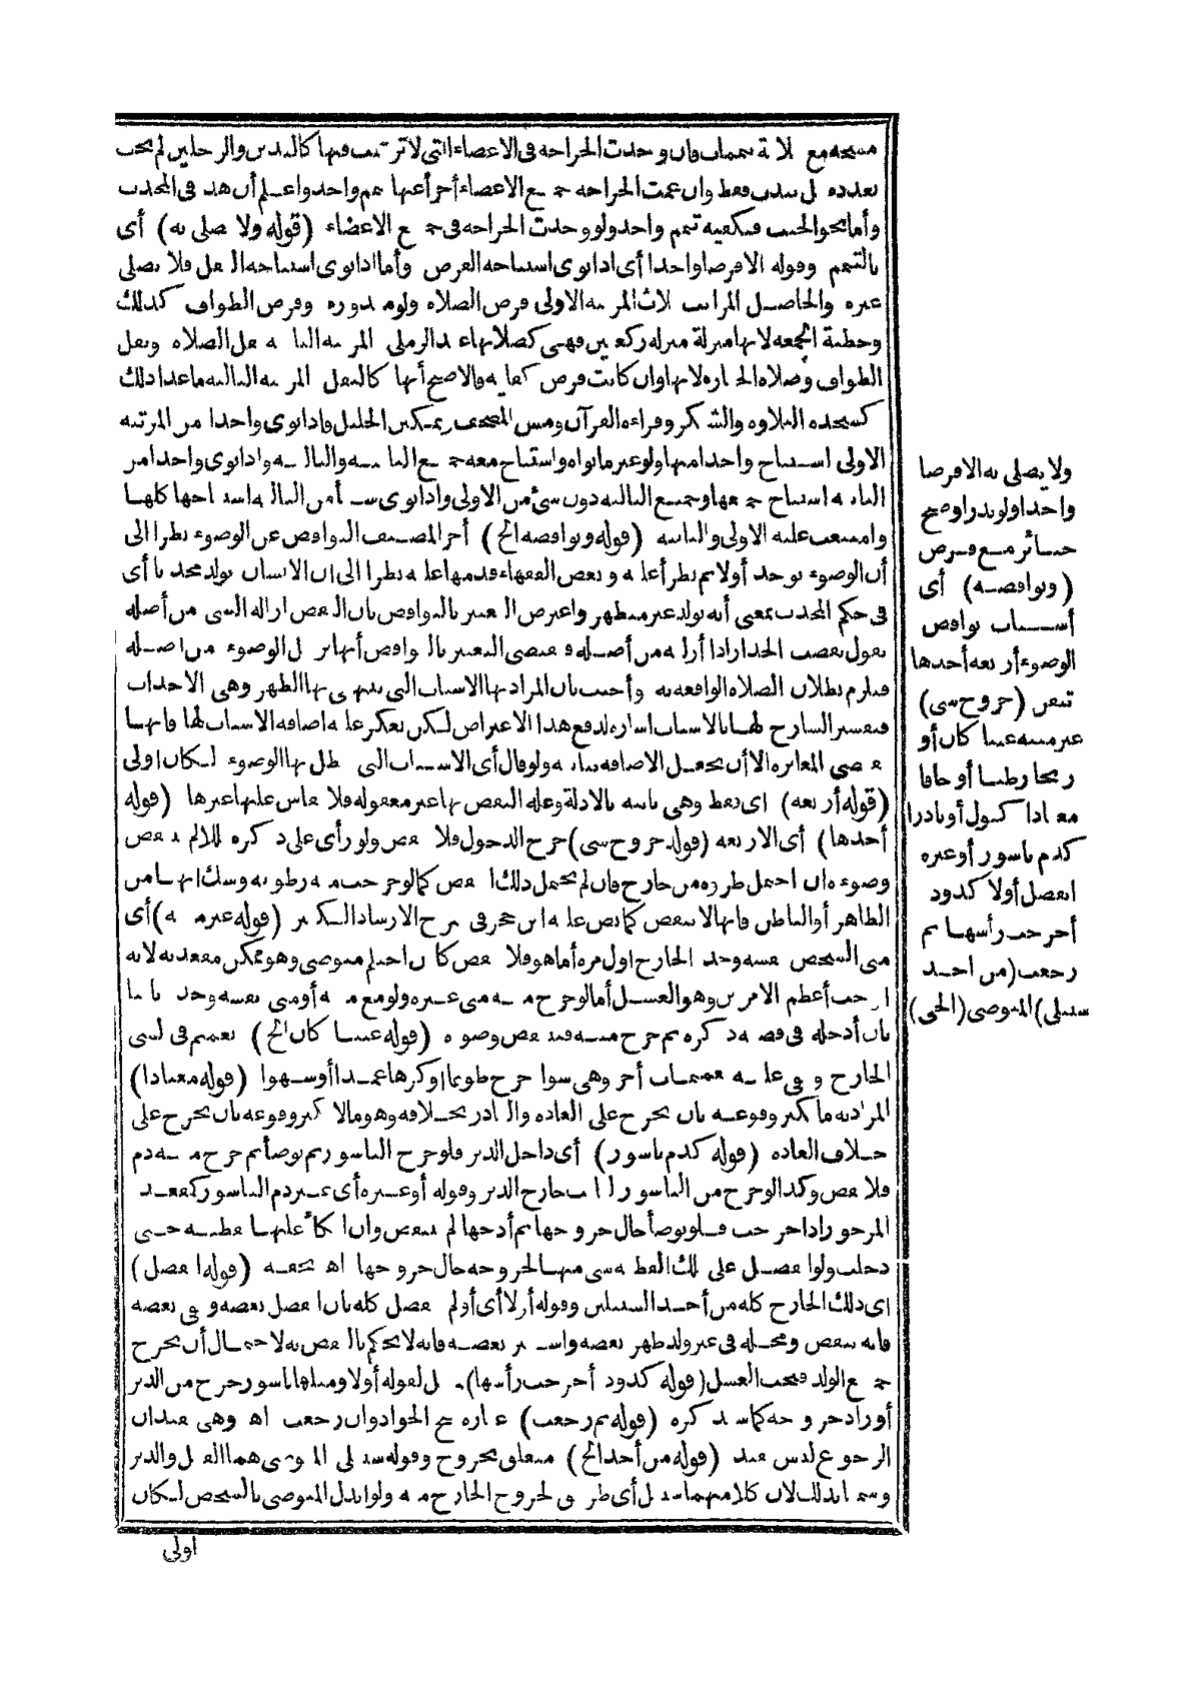 مسحه مع ثلاثة تيممات فان وجدت الجراحة فى الاعضاء التى لا ترتيب فيها كاليدين والرجلين لم يجب
تعدده بل يندب فقط وان عمت الجراحة جميع الاعضاء أجزأ عنها تيمم واحد واعلم أن هذا فى المحدث
وأما نحو الجنب فيكفيه تيمم واحد ولو وجدت الجراحة فى جميع الاعضاء (قوله ولا يصلى به) أى
بالتيمم وقوله الا فرضا واحدا أى اذا نوى استباحة الفرض وأما اذا نوى استباحة النفل فلا يصلى
غيره والحاصل المراتب ثلاث المرتبة الاولى فرض الصلاة ولو منذورة وفرض الطواف كذلك
وخطبة الجمعة لانها منزلة منزلة ركعتين فهى كصلاتها عند الرملى المرتبة الثانية نفل الصلاة ونفل
الطواف وصلاة الجنازة لانها وان كانت فرض كفاية فالاصح أنها كالنفل المرتبة الثالثة ما عدا ذلك
كسجدة التلاوة والشكر وقراءة القرآن ومس المصحف وتمكين الحليل فاذا نوى واحدا من المرتبة
الاولى استباح واحدا منها ولو غير ما نواه واستباح معه جميع الثانية والثالثة واذا نوى واحدا من
الثانية استباح جميعها وجميع الثالثة دون شئ من الاولى واذا نوى شيأ من الثالثة استباحها كلها
وامتنعت عليه الاولى والثانية (قوله ونواقضه الخ) أخر المصنف النواقض عن الوضوء نظرا الى
أن الوضوء يوجد أولا ثم يطرأ عليه وبعض الفقهاء قدمها عليه نظرا الى ان الانسان يولد محدثا أى
فى حكم المحدث بمعنى أنه يولد غير متطهر واعترض التعبير بالنواقض بان النقض ازالة الشئ من أصله
تقول نقضت الجدار اذا أزلته من أصله فمقتضى التعبير بالنواقض أنها تزيل الوضوء من اصله
فيلزم بطلان الصلاة الواقعة به وأجيب بان المراد بها الاسباب التى ينتهى بها الطهر وهى الاحداث
فتفسير الشارح لها بالاسباب اشارة لدفع هذا الاعتراض لكن يعكر عليه اضافة الاسباب لها فانها
تقتضى المغايرة الا أن تجعل الاضافة بيانية ولو قال أى الاسباب التى يبطل بها الوضوء لكان اولى
(قوله أربعة) اى فقط وهى ثابتة بالادلة وعلة النقض بها غير معقولة فلا يقاس عليها غيرها (قوله
أحدها) أى الاربعة (قوله خروج شئ) خرج الدخول فلا ينقض ولو رأى على ذكره بللا لم ينتقض
وضوءه ان احتمل طروه من خارج فان لم يحتمل ذلك انتقض كما لو خرجت منه رطوبة وشك انها من
الظاهر أو الباطن فانها لا تنقض كما نص عليه ابن حجر فى شرح الارشاد الكبير (قوله غير منيه) أى
منى الشخص نفسه وحده الخارج اول مرة أما هو فلا ينقض كأن احتلم متوضئ وهو ممكن مقعدته لانه
اوجب أعظم الامرين وهو الغسل أما لو خرج منه منى غيره ولو مع منيه أو منى نفسه وحده ثانيا
بان أدخله فى قصبة ذكره ثم خرج منه فينتقض وضوءه (قوله عينا كان الخ) تعميم فى الشئ
الخارج وبقى عليه تعميمات أخر وهى سواء خرج طوعا او كرها عمدا أو سهوا (قوله معتادا)
المراد به ما كثر وقوعه بان يخرج على العادة والنادر بخلافه وهو ما لا يكثر وقوعه بان يخرج على
خلاف العادة (قوله كدم باسور) أى داخل الدبر فلو خرج الباسور ثم توضأ ثم خرج منه دم
فلا ينقض وكذا لو خرج من الباسور النابت خارج الدبر وقوله أو غيره أى غير دم الباسور كمقعدة
المزحور اذا خرجت فلو توضأ حال خروجها ثم أدخلها لم ينتقض وان اتكأ عليها بقطنة حتى
دخلت ولو انفصل على تلك القطنة شئ منها لخروجه حال خروجها اه تحفة (قوله انفصل)
اى ذلك الخارج كله من أحد السبيلين وقوله أولا أى أو لم ينفصل كله بان انفصل بعضه وبقى بعضه
فانه ينقض ومحله فى غير ولد ظهر بعضه واستتر بعضه فانه لا يحكم بالنقض به لاحتمال أن يخرج
جميع الولد فيجب الغسل (قوله كدود أخرجت رأسها) تمثيل لقوله أولا ومثلها باسور خرج من الدبر
أو زاد خروجه كما سيذكره (قوله ثم رجعت) عبارة حج الجواد وان رجعت اه وهى تفيد ان
الرجوع ليس بقيد (قوله من أحد الخ) متعلق بخروج وقوله سبيلى المتوضئ هما القبل والدبر
وسميا بذلك لان كلا منهما سبيل أى طريق لخروج الخارج منه ولو ابدل المتوضئ بالشخص لكان
اولى
ولا يصلى به الا فرضا
واحدا ولو نذرا وصح
جنائز مع فرض
(ونواقضه) أى
أسباب نواقض
الوضوء أربعة أحدها
تيقن (خروج شئ)
غير منيه عينا كان أو
ريحا رطبا أو جافا
معتادا كبول أو نادرا
كدم باسور أو غيره
انفصل أولا كدود
أخرجت رأسها ثم
رجعت (من احد
سبيلى) المتوضئ (الحى)